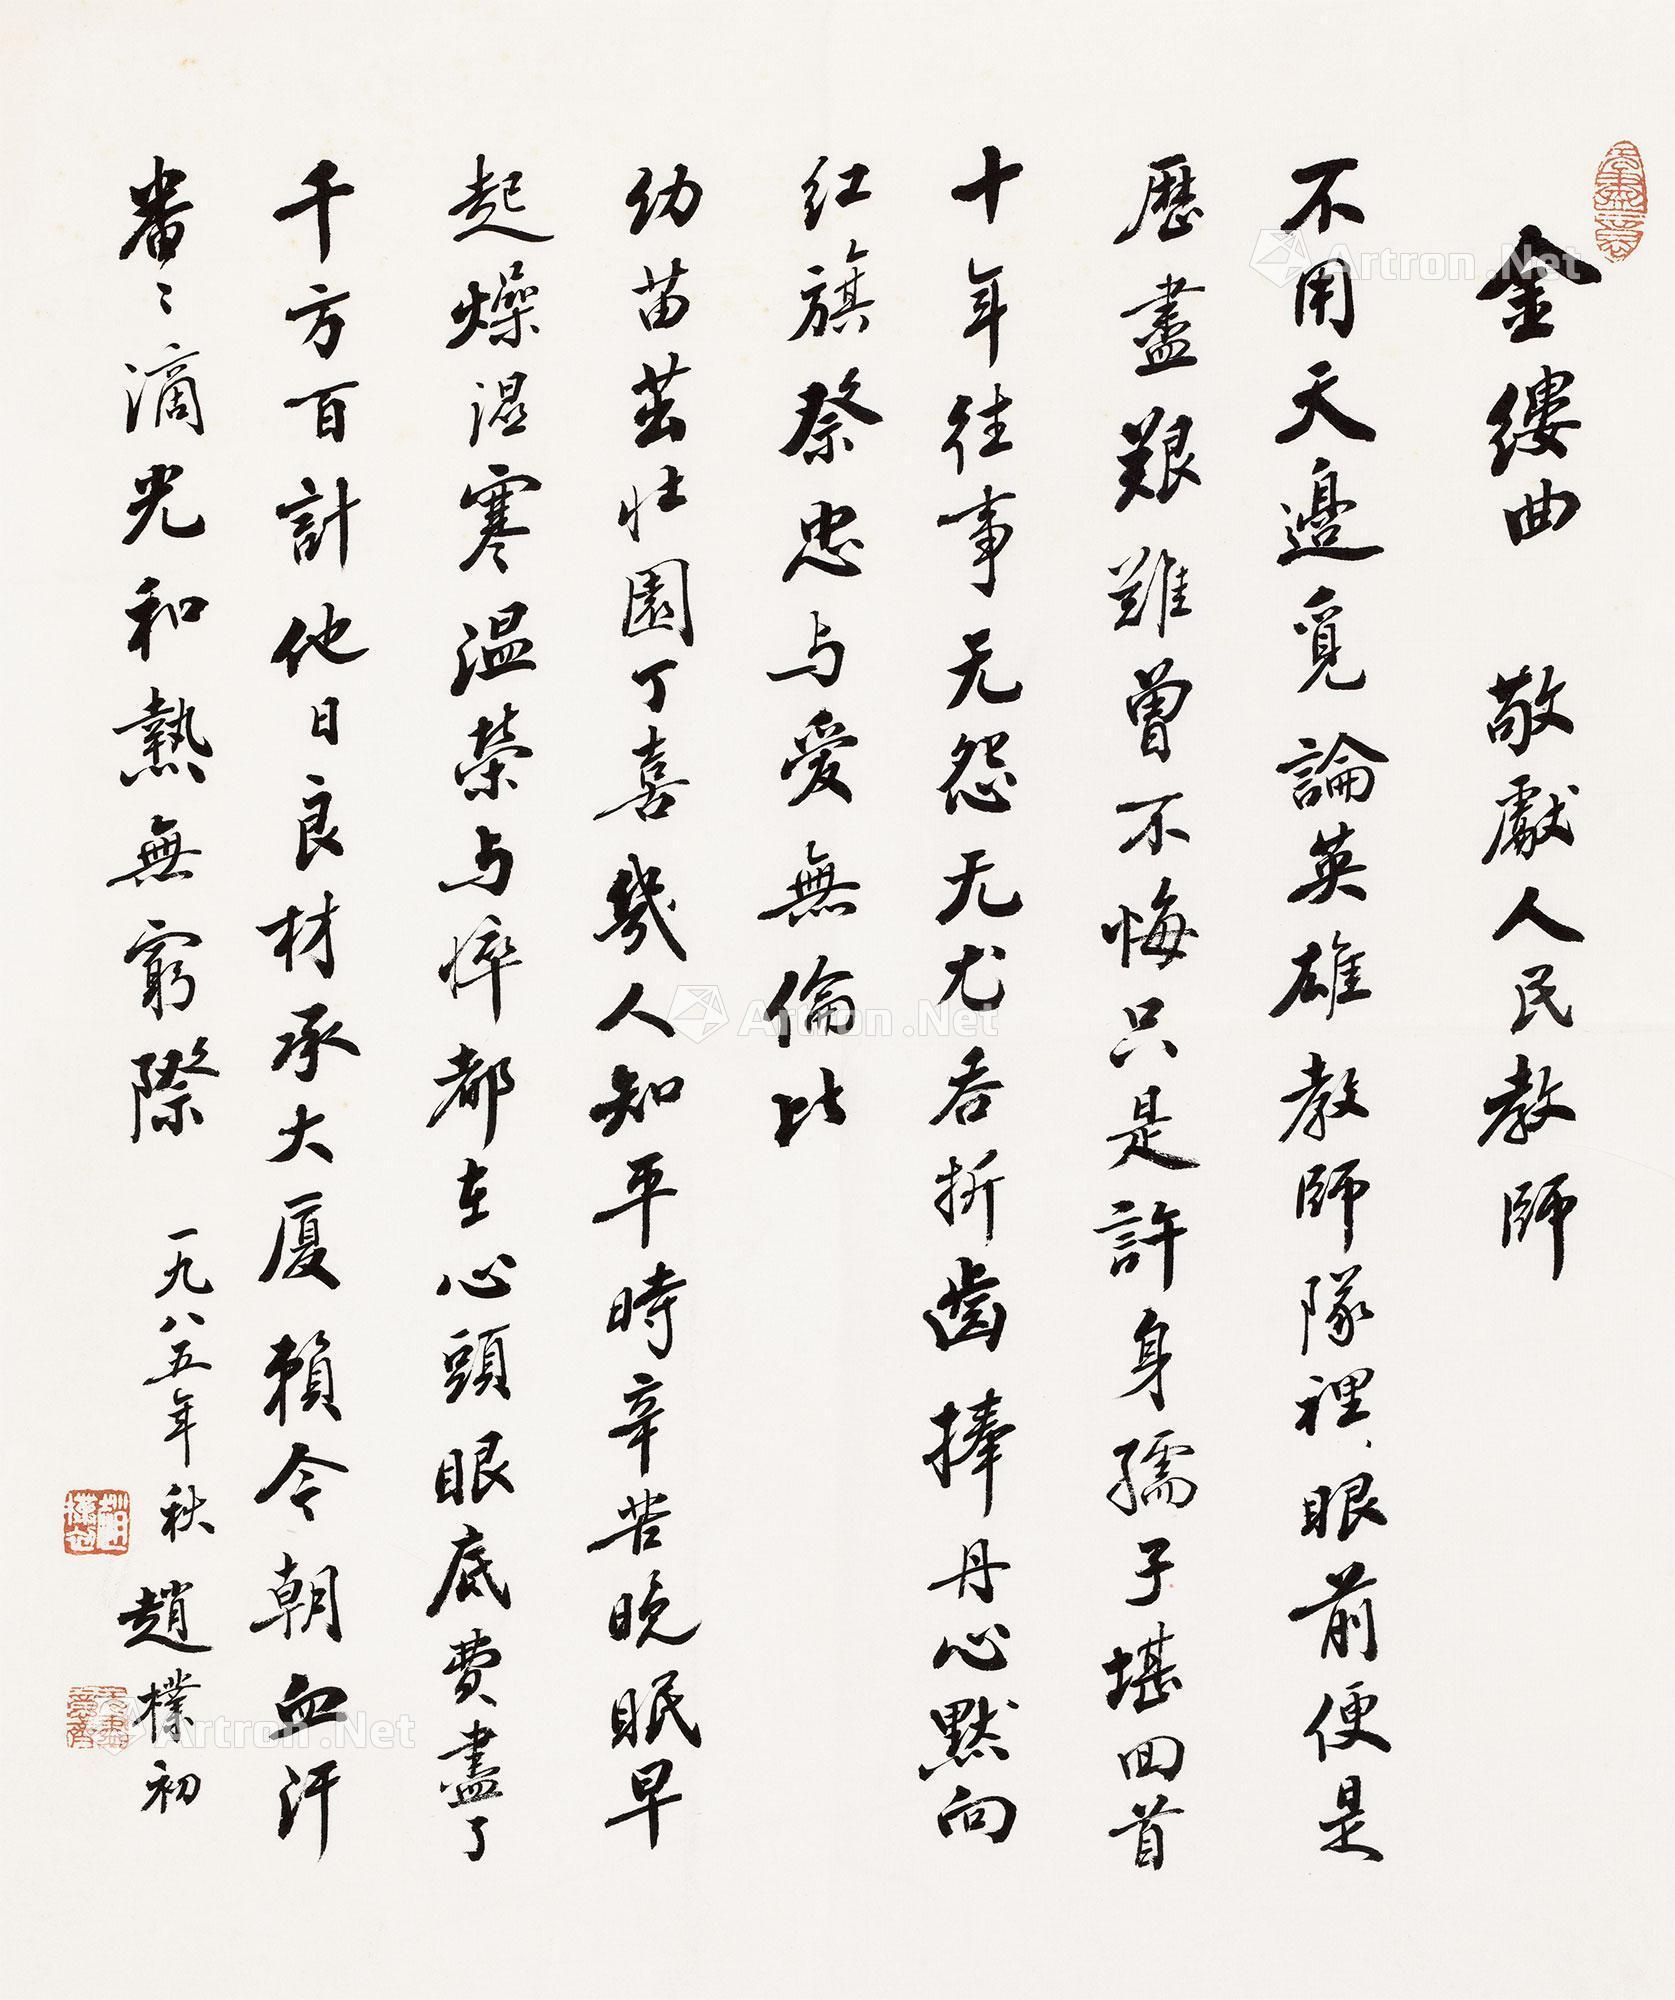 金缕曲 敬獻人民教師
不用天邊覓論英雄教師隊裡、眼前便是
歷盡艱難曾不悔只是許身孺子堪回首
十年往事无怨无尤吞折齒捧丹心默向
红旗祭忠与爱無倫比
幼苗茁壮園丁喜幾人知平時辛苦晚眠早
起燥湿寒温榮与悴都在心頭眼底費盡了
千方百計他日良材承大厦賴今朝血汗
番〻滴光和熱無窮際
一九八五年秋 趙樸初
趙樸初
Artron.Net
Artron.Net
Artron.Net